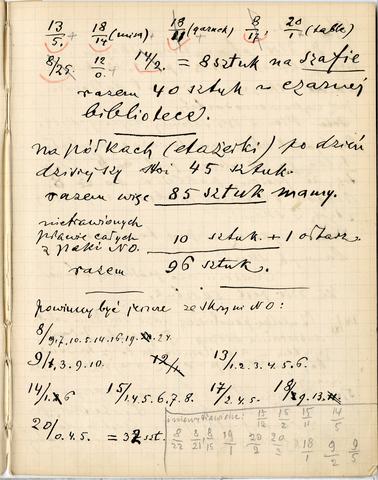 13/5. + 18/14 (misa) 18/11 (garnek) 8/17, 20/1 (table)
8/25. 12/0. + 14/2. = 8 sztuk na szafie
razem 40 sztuk w czarnej
bibliotece.
na półkach (etażerki) po dzień
dzisiejszy 45 sztuk.
razem więc 85 sztuk mamy.
prawie całych
z paki NO. 10 sztuk. + 1 ołtarz
razem 96 sztuk.
powinny być jeszcze ze skrzyni NO:
8/9.7.10.5.14.16.19. 24
9/1, 3.9.10. 12/1 13/1.2.3.4.5.6.
14/1. 6 15/1.4.5.6.7.8. 17/2.4.5. 18/29.13.11.
20/0.4.5. = 32 szt.
17/12 15/2 15/11 14/5
8/22 8/21 8/15 19/1 20/9 20/2 18/11 9/2 9/5